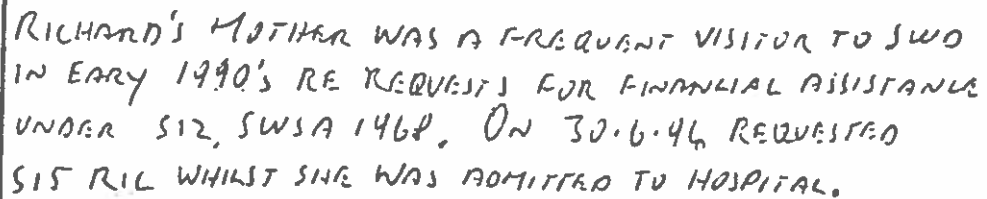 RICHARD'S MOTHER WAS A FREQUENT VISITOR TO SWD
IN EARY 1990'S RE REQUESTS FOR FINANCIAL ASSISTANCE
UNDER S12, SWSA 1968. ON 30.6.96 REQUESTED
S15 RIC WHILST SHE WAS ADMITTED TO HOSPITAL.